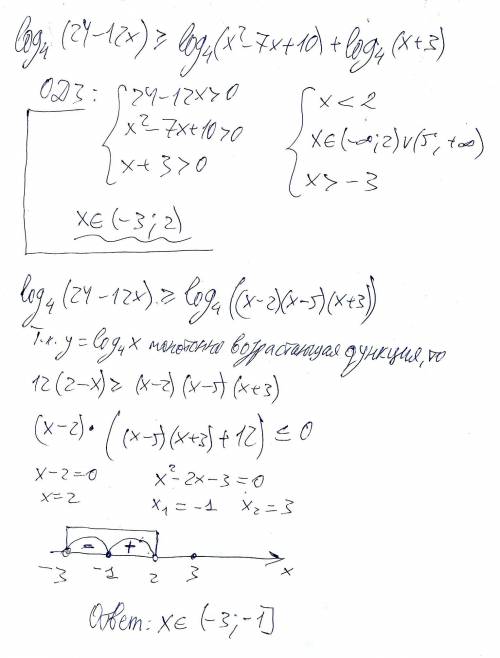 log₄(24-12x) ≥ log₄(x²-7x+10) + log₄(x+3)
ОДЗ: { 24-12x>0 { x<2
x²-7x+10>0 x∈(-∞;2)∨(5;+∞)
x+3>0 x>-3
x∈(-3;2)
log₄(24-12x) ≥ log₄((x-2)(x-5)(x+3))
Т.к. y=log₄x монотонно возрастающая функция, то
12(2-x) ≥ (x-2)(x-5)(x+3)
(x-2)·((x-5)(x+3)+12) ≤ 0
x-2=0 x²-2x-3=0
x=2 x₁=-1 x₂=3
- +
-3 -1 2 3 x
Ответ: x∈(-3;-1]